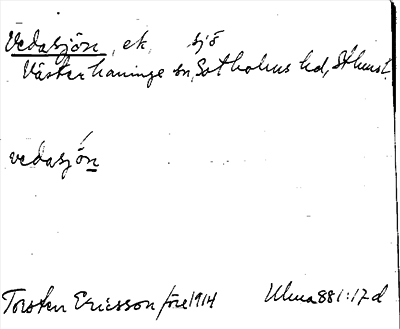 Vedasjön, ek, sjö
Västerhaninge sn, Sotholms hd, Sthms l.
vedasjö́n
Torsten Ericsson före 1914 Ulma 881:17 d